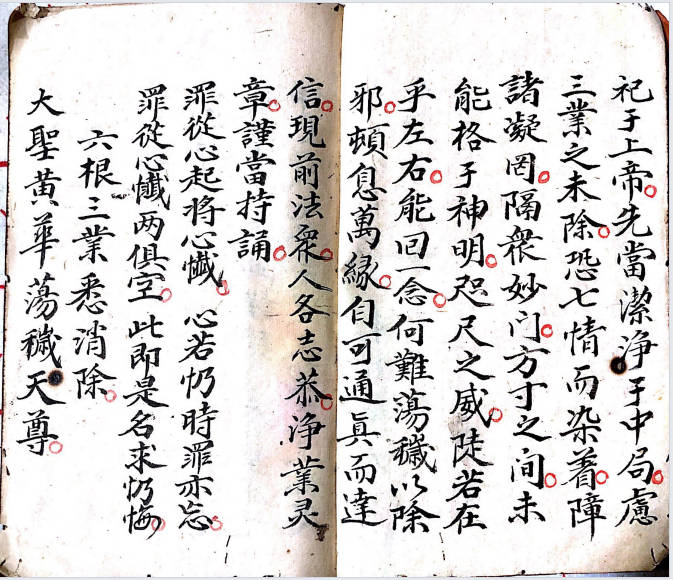 祀于上帝。先當潔淨于中局。慮
三業之未除。恐七情而染着。障
諸凝罔隔衆妙门。方寸之间。未
能格于神明。咫尺之威。陡若在
乎左右。能回一念。何難蕩穢以除
邪。頓息萬縁。自可通真而達
信。現前法衆。人各志恭。净業灵
章。謹當持誦。
罪從心起將心懺。心若忉時罪亦忘。
罪從心懺两俱空。此即是名求忉悔。
六根三業悉消除。
大聖黄華蕩穢天尊。